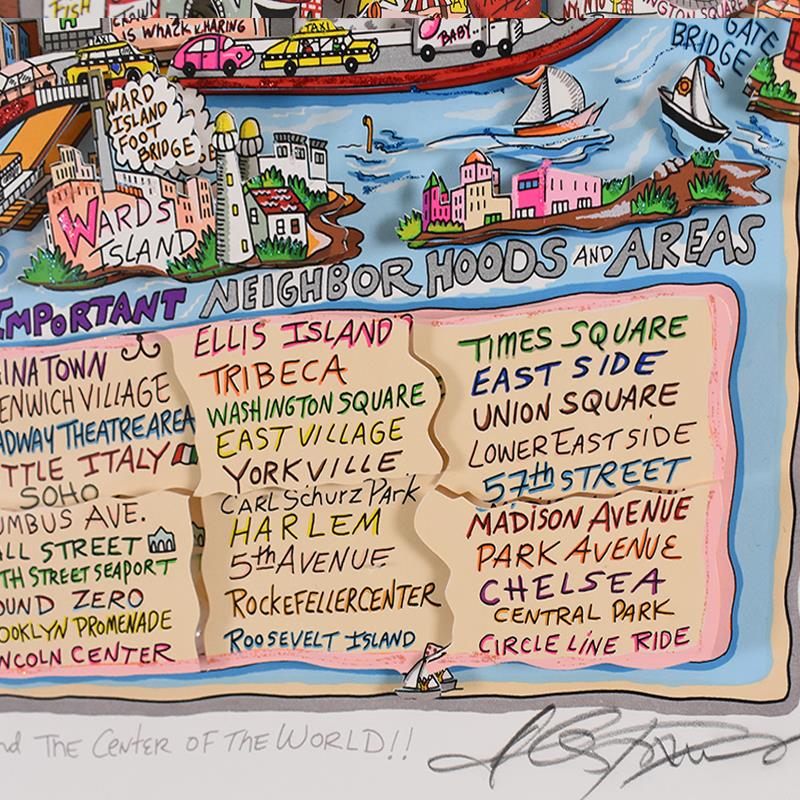 FISH
IS WHACK SHARING
TAXI
TAXI
BABY..
GATE
BRIDGE
WARD
ISLAND
FOOT
BRIDGE
WARDS
ISLAND
IMPORTANT NEIGHBORHOODS AND AREAS
INATOWN
ENWICH VILLAGE
ADWAY THEATRE AREA
TTLE ITALY
SOHO
UMBUS AVE.
ALL STREET
TH STREET SEAPORT
OUND ZERO
OOKLYN PROMENADE
NCOLN CENTER
ELLIS ISLAND
TRIBECA
WASHINGTON SQUARE
EAST VILLAGE
YORKVILLE
CARL SCHURZ PARK
HARLEM
5th AVENUE
ROCKEFELLER CENTER
ROOSEVELT ISLAND
TIMES SQUARE
EAST SIDE
UNION SQUARE
LOWER EAST SIDE
57th STREET
MADISON AVENUE
PARK AVENUE
CHELSEA
CENTRAL PARK
CIRCLE LINE RIDE
nd THE CENTER OF THE WORLD!!